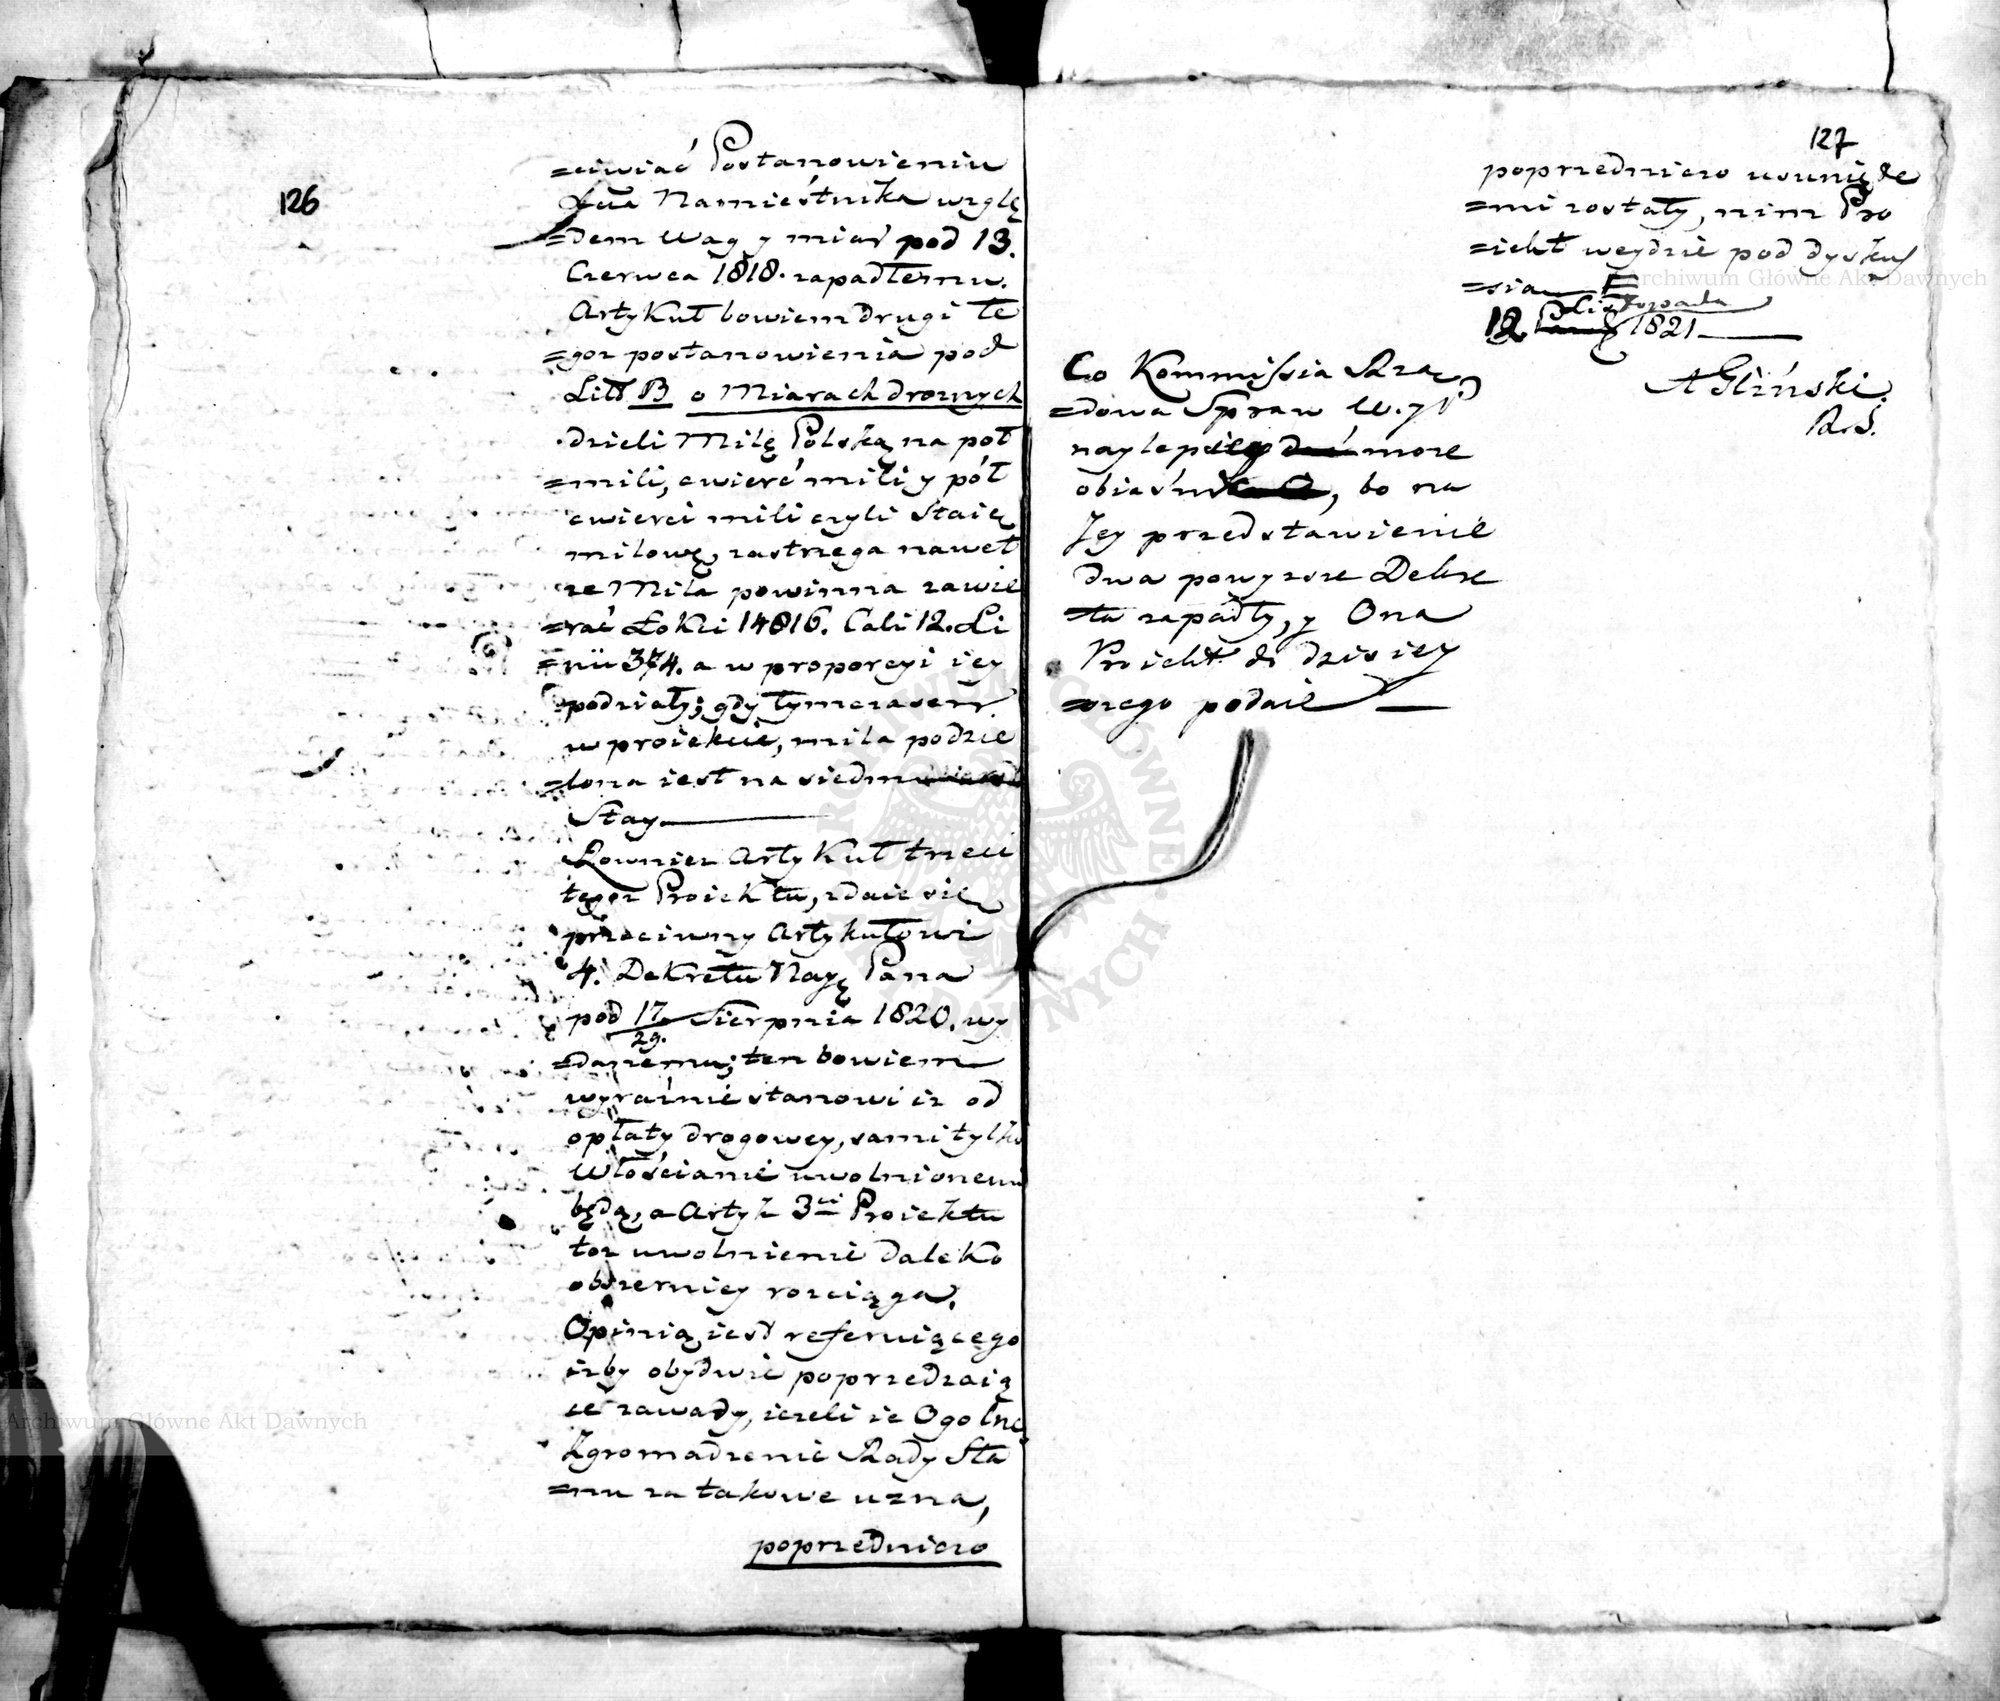 126
=ciwiać Postanowieniu
Xcia Namiestnika wzglę
=dem Wag y miar pod 13.
Czerwca 1818. zapadłemu.
Artykuł bowiem drugi te
=goz postanowienia pod
Litt B o Miarach drożnych
dzieli Milę Polską na pół
=mili, cwierć mili y pół
cwierci mili czyli Staię
milowę, zastrzega nawet
ze Mila powinna zawie
=rać Łokci 14816. Cali 12. Li
=nii 374. a w proporcyi iey
podziały; gdy tymczasem
w proiekcie, mila podzie
=lona iest na siedm
Stay
Rowniez Artykuł trzeci
tegoz Proiektu, zdaie się
przeciwny Artykułowi
4. Dekretu Nayę Pana
pod 17/29. Sierpnia 1820. wy
=danemu; ten bowiem
wyraźnie stanowi iz od
opłaty drogowey, sami tylko
Włościanie uwolnionemi
będą, a Artyk 3ci Proiektu
toz uwolnienie daleko
obszerniey rozciąga.
Opinią iest referuiącego
izby obydwie poprzedzaią
ce zawady, iezeli ie Ogolne
Zgromadzenie Rady Sta
=nu za takowe uzna,
poprzedniczo
127
poprzedniczo usunięte
=mi zostały, nim Pro
=iekt weydzie pod dysku
=sia
Listopada
12. 1821
A Gliński
R. S.
Co Kommissia Rzą
=dowa Spraw W. y P
naylepiey może
obiaśnić, bo na
Jey przedstawienie
dwa powyzsze Dekre
=ta zapadły, y Ona
Proiekt do dzisiey
=szego podaie
Archiwum Główne Akt Dawnych
Archiwum Główne Akt Dawnych
ARCHIWUM GŁÓWNE AKT DAWNYCH